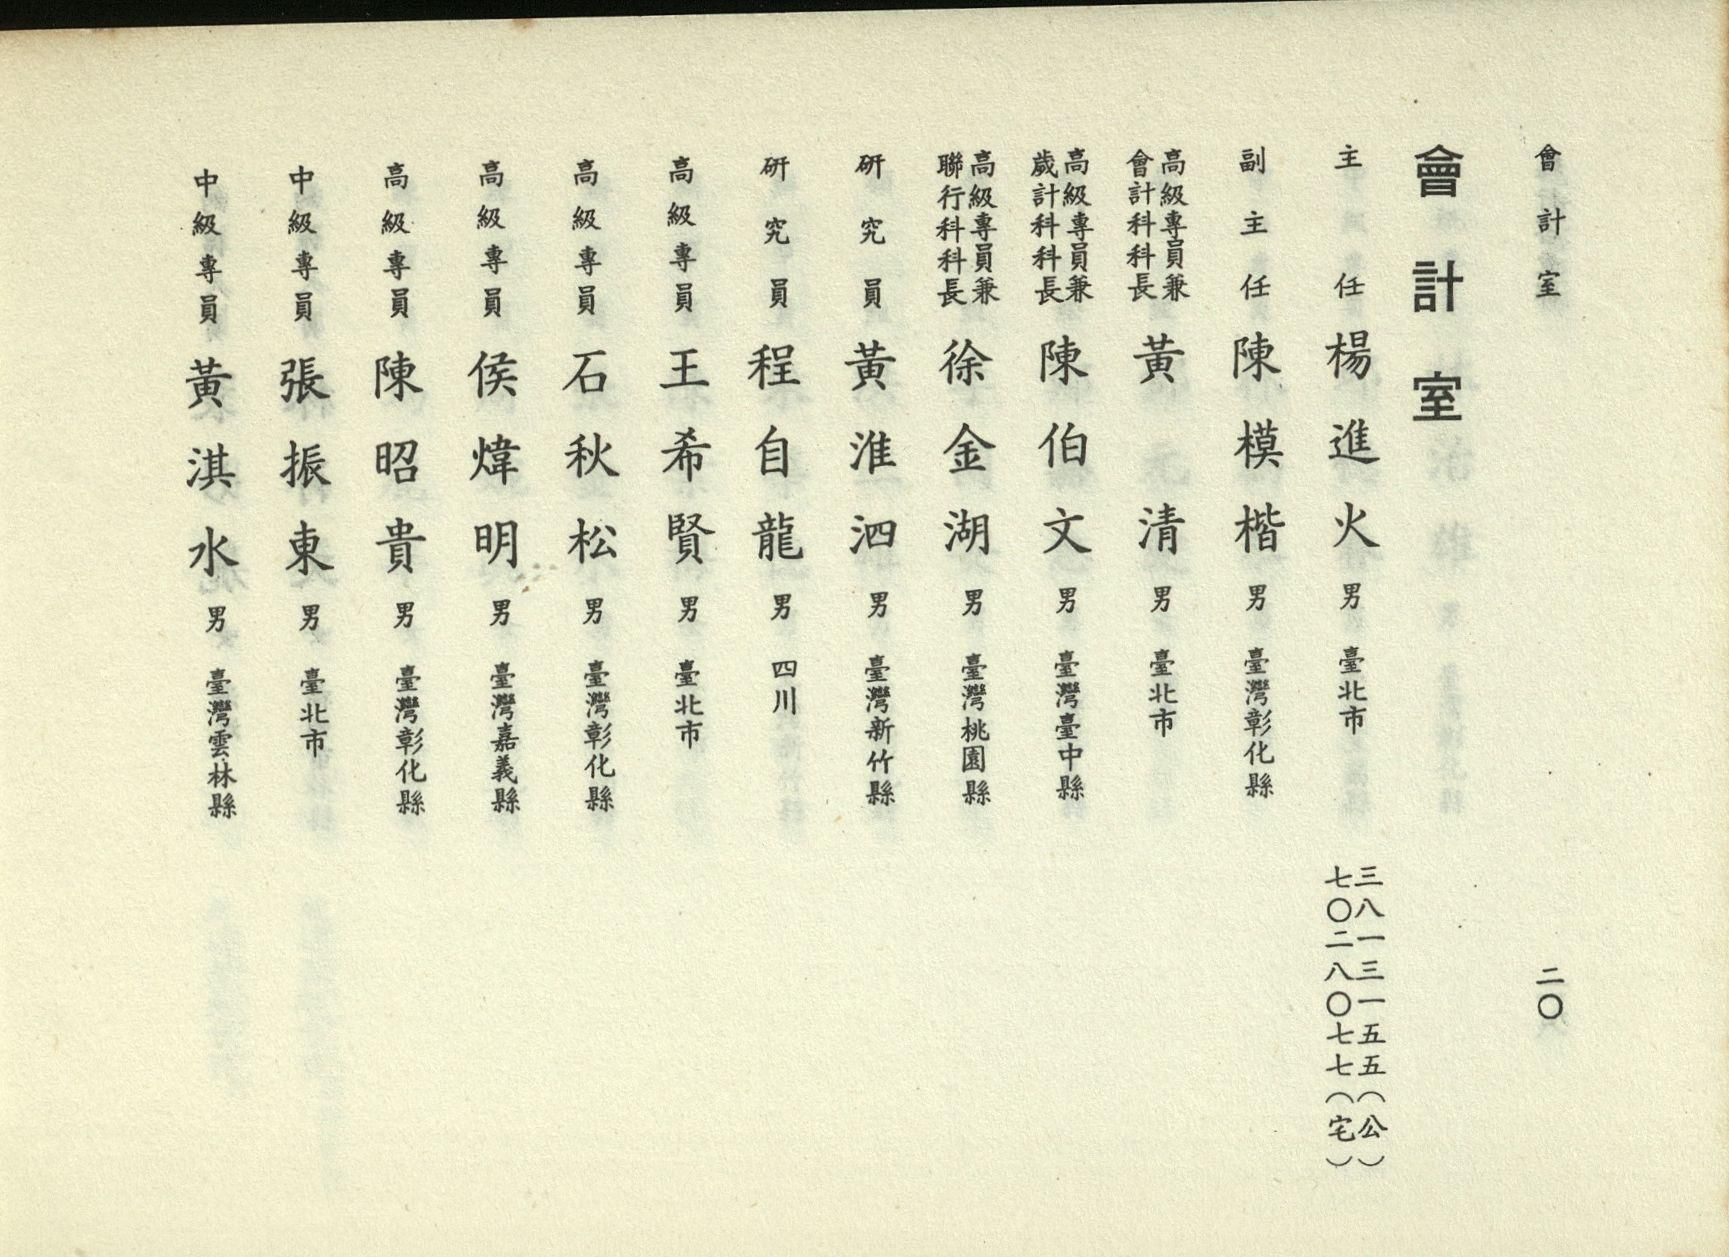 會計室
二〇
會計室
主任 楊進火 男 臺北市 三八一三一五五(公)
七〇二八〇七七(宅)
副主任 陳模楷 男 臺灣彰化縣
高級專員兼
會計科科長 黃清 男 臺北市
高級專員兼
歲計科科長 陳伯文 男 臺灣臺中縣
高級專員兼
聯行科科長 徐金湖 男 臺灣桃園縣
研究員 黃淮泗 男 臺灣新竹縣
研究員 程自龍 男 四川
高級專員 王希賢 男 臺北市
高級專員 石秋松 男 臺灣彰化縣
高級專員 侯煒明 男 臺灣嘉義縣
高級專員 陳昭貴 男 臺灣彰化縣
中級專員 張振東 男 臺北市
中級專員 黃淇水 男 臺灣雲林縣